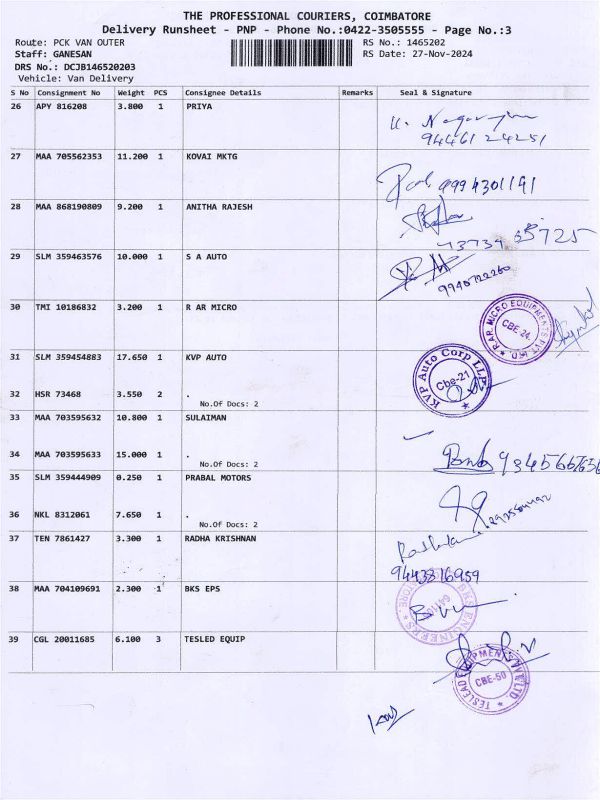 THE PROFESSIONAL COURIERS, COIMBATORE
Delivery Runsheet - PNP - Phone No.:0422-3505555 - Page No.:3
Route: PCK VAN OUTER RS No.: 1465202
Staff: GANESAN RS Date: 27-Nov-2024
DRS No.: DCJB146520203
Vehicle: Van Delivery
S No Consignment No Weight PCS Consignee Details Remarks Seal & Signature
26 APY 816208 3.800 1 PRIYA
94461 24251
27 MAA 705562353 11.200 1 KOVAI MKTG
9994301191
28 MAA 868190809 9.200 1 ANITHA RAJESH
29 SLM 359463576 10.000 1 S A AUTO
30 TMI 10186832 3.200 1 R AR MICRO
R.AR. MICRO EQUIPMENTS PVT LTD
CBE-24
31 SLM 359454883 17.650 1 KVP AUTO
KVP Auto Corp LLP
Cbe-21
32 HSR 73468 3.550 2 .
No.Of Docs: 2
33 MAA 703595632 10.800 1 SULAIMAN
34 MAA 703595633 15.000 1 .
No.Of Docs: 2
35 SLM 359444909 0.250 1 PRABAL MOTORS
36 NKL 8312061 7.650 1 .
No.Of Docs: 2
37 TEN 7861427 3.300 1 RADHA KRISHNAN
9443816959
38 MAA 704109691 2.300 1 BKS EPS
39 CGL 20011685 6.100 3 TESLED EQUIP
CBE-50